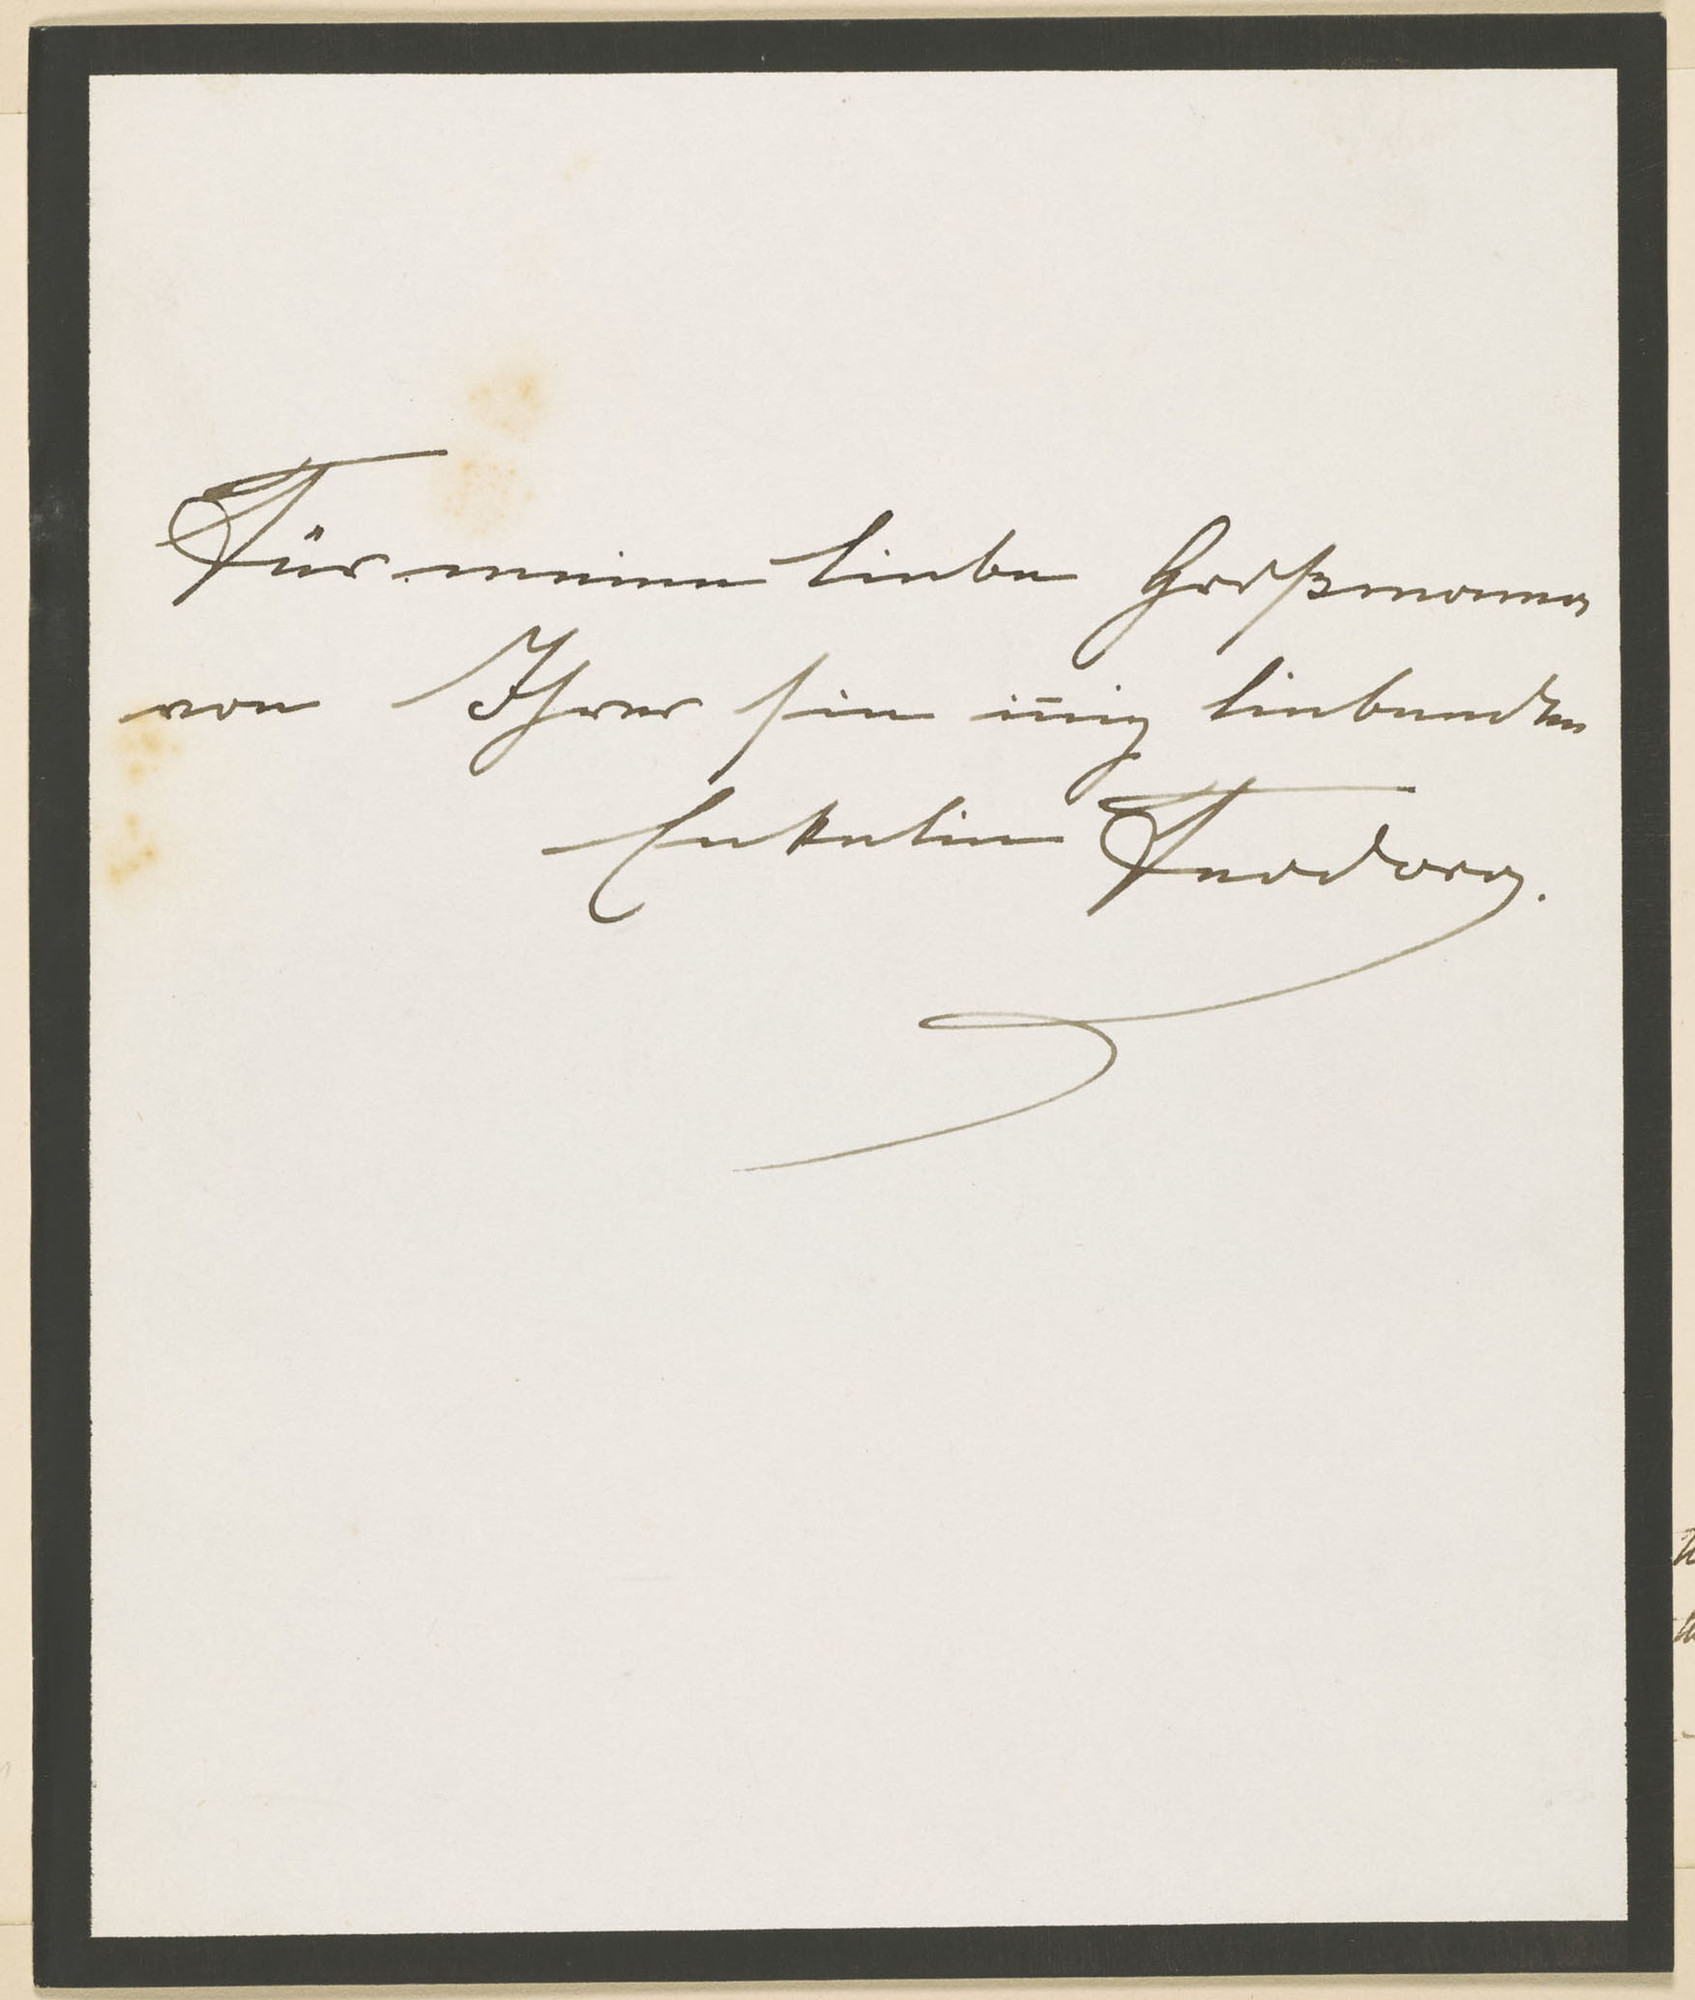 Für meine liebe Großmama
von Ihrer sie iñig liebenden
Enkelin Feodora.